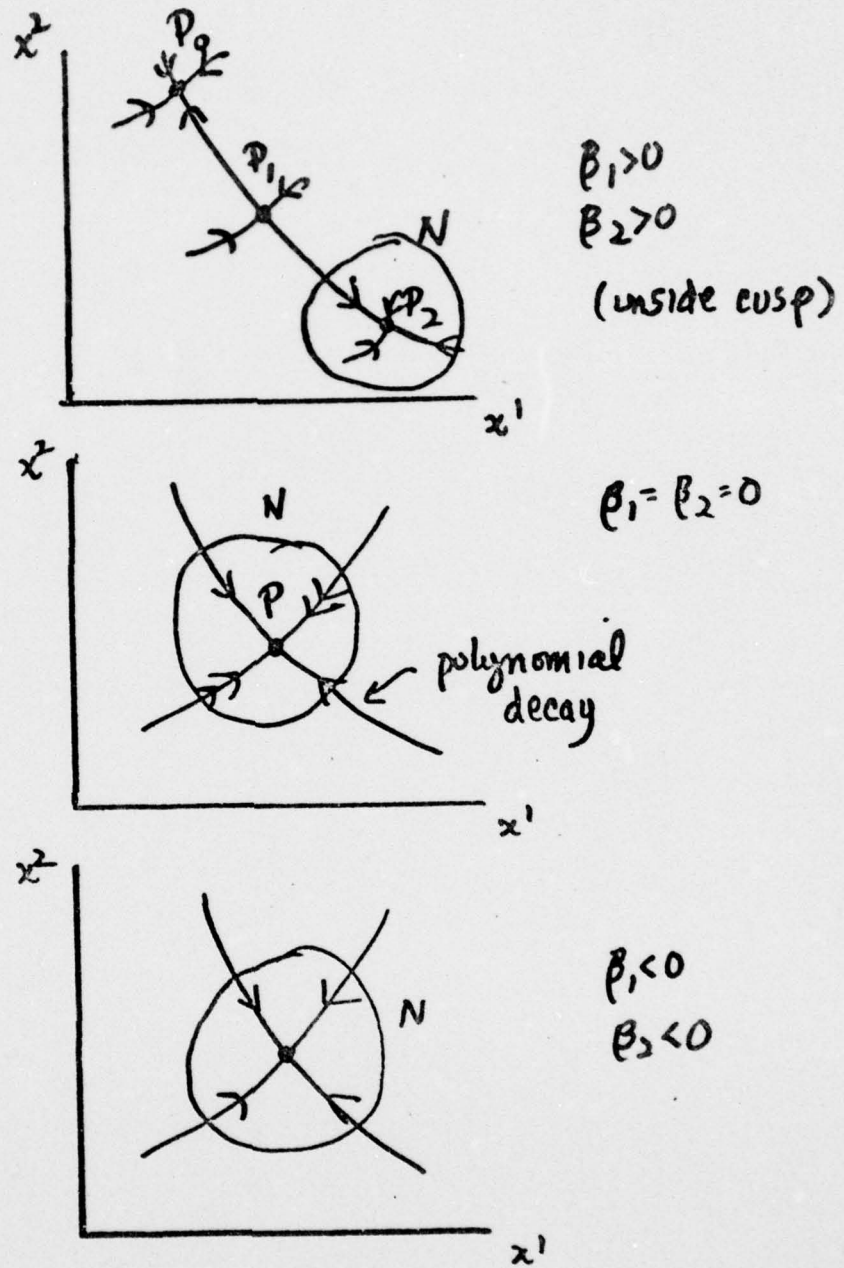 x²
P₀
P₁
N
P₂
x¹
β₁>0
β₂>0
(inside cusp)
x²
N
P
polynomial
decay
x¹
β₁=β₂=0
x²
N
x¹
β₁<0
β₂<0